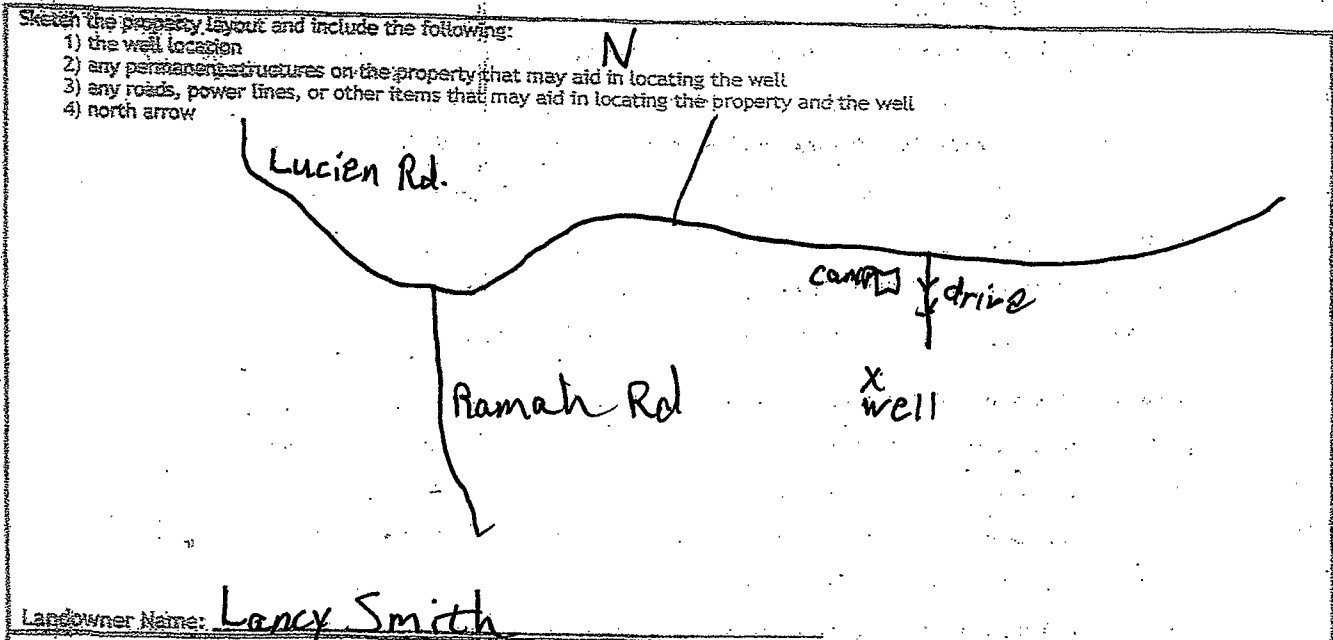 Sketch the property layout and include the following:
1) the well location
N
2) any permanent structures on the property that may aid in locating the well
3) any roads, power lines, or other items that may aid in locating the property and the well
4) north arrow
Lucien Rd.
camp
drive
Ramah Rd
x
well
Landowner Name: Lancy Smith